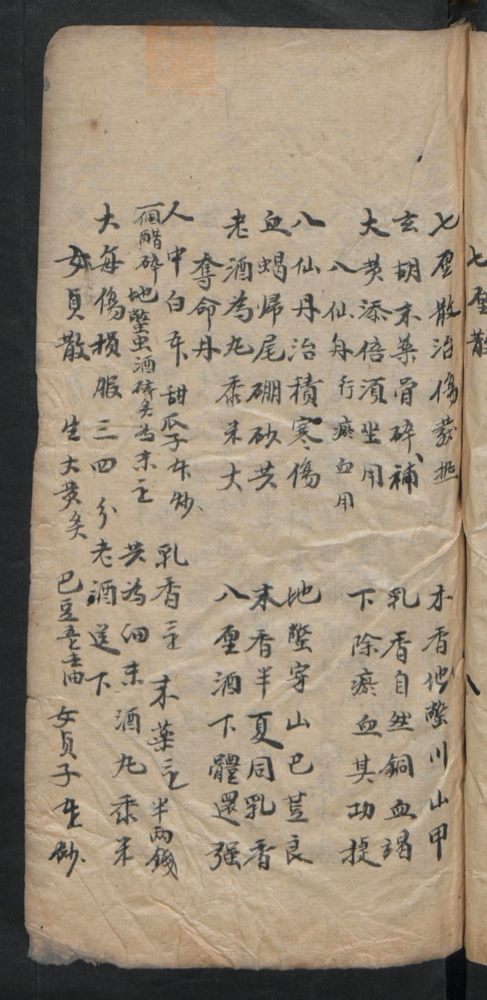 七厘散
七厘散治傷發熱 木香地鱉川山甲
玄胡末藥骨碎補 乳香自然銅血竭
大黃添倍須坐用 下除瘀血其功捷
八仙丹 行瘀血用
八仙丹治積寒傷 地鱉穿山巴荳良
血蝎歸尾硼砂共 末香半夏同乳香
老酒為丸黍米大 八厘酒下體還强
奪命丹
人中白 甜瓜子 炒 乳香 末藥 半兩錢
一個醋碎 地鱉虫酒 為末 共為細末酒丸黍米
大每傷損服三四分老酒送下
女貞散 生大黃 巴豆 女貞子 炒